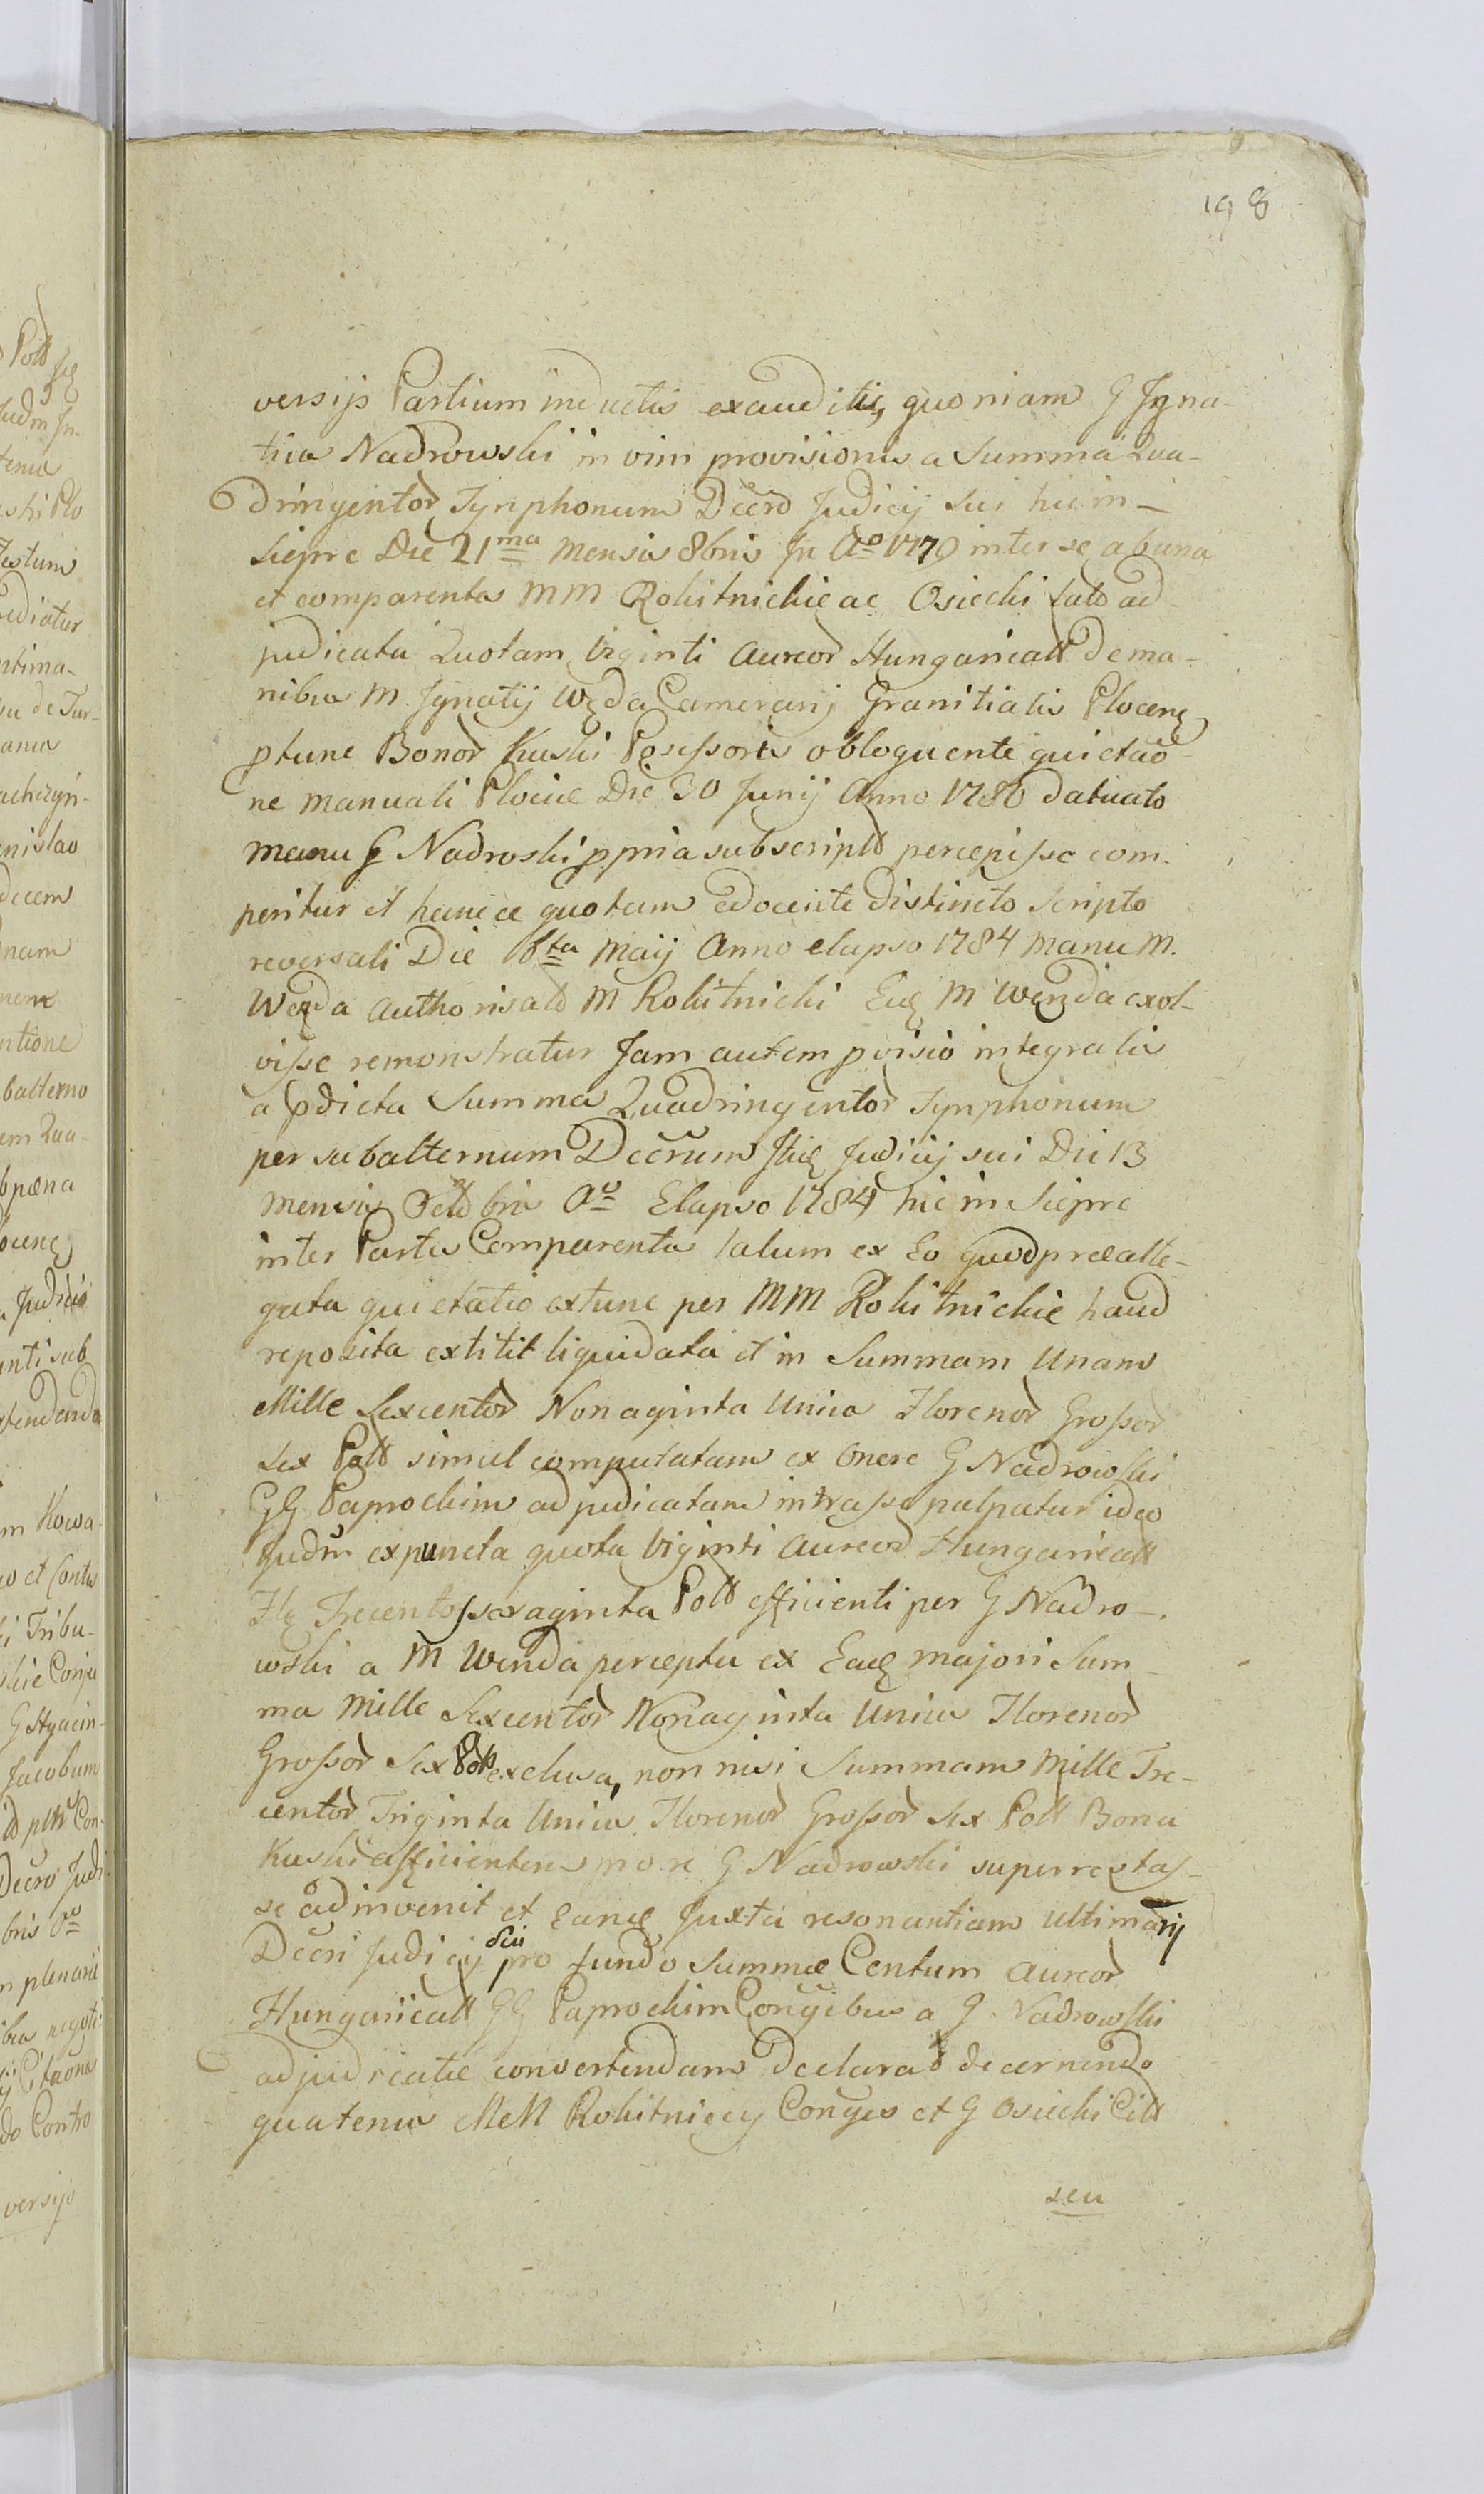 198
versijs Partium inductis exauditis, quoniam G Igna-
tius Nadrowski in vim provisionis a Summa Qua-
dringentor Tynphonum Decro Judicij sui hic in
Sieprc Die 21ma Mensis 8bris In Ao 1779 inter se ab una
et comparentes MM Rokitnickie ac Osiecki lato ad-
judicata Quotam Viginti Aureor Hungaricall de ma-
nibus M Ignatij Węda Camerarij Granitialis Plocens
ptunc Bonor Kuski Possessoris obloquente quietao-
ne manuali Plociae Die 30 Junij Anno 1780 datuato
manu G Nadroski ppria subscripto percepisse com-
peritur et hancce quotam edocente distincto Scripto
reversali Die 6ta Maij Anno elapso 1784 manu M.
Węda Authorisato M Rokitnicki Eid M Węnda exol-
visse remonstratur Jam autem pvisio integralis
a pdicta Summa Quadringentor Tynphonum
per subalternum Decrum Jtid Judicij sui Die 13
Mensis Octobris Ao Elapso 1784 hic in Sieprc
inter Partes Comparentes latum ex Eo quod prealle-
gata quietatio extunc per MM Rokitnickie haud
reposita extitit liquidata et in Summam Unam
Mille Sexcentor Nonaginta Unius Florenor Grossor
Sex Poll simul computatam ex Onere G Nadrowski
GG Paprockim adjudicatam intrasse palpatur ideo
Judm expuncta quota Viginti Aureor Hungaricall
Fls Trecentos sexaginta Poll efficienti per G Nadro-
wski a M Wenda percepta ex Ead majori Sum-
ma Mille Sexcentor Nonaginta Unius Florenor
Grossor Sex Poll exclusa, non nisi Summam Mille Tre-
centor Triginta Unius Florenor Grossor Sex Poll Bona
Kuski afficientem pro re G Nadrowski superextas-
se adinvenit et eand Juxta resonantiam ultimarij
Decri Judicij sui pro fundo Summae Centum Aureor
Hungaricall GG Paprockim Conjugibus a G Nadrowski
adjudicatae convertendam Declarat decernendo
quatenus MM Rokitniccy Conges et G Osiecki Citt
seu